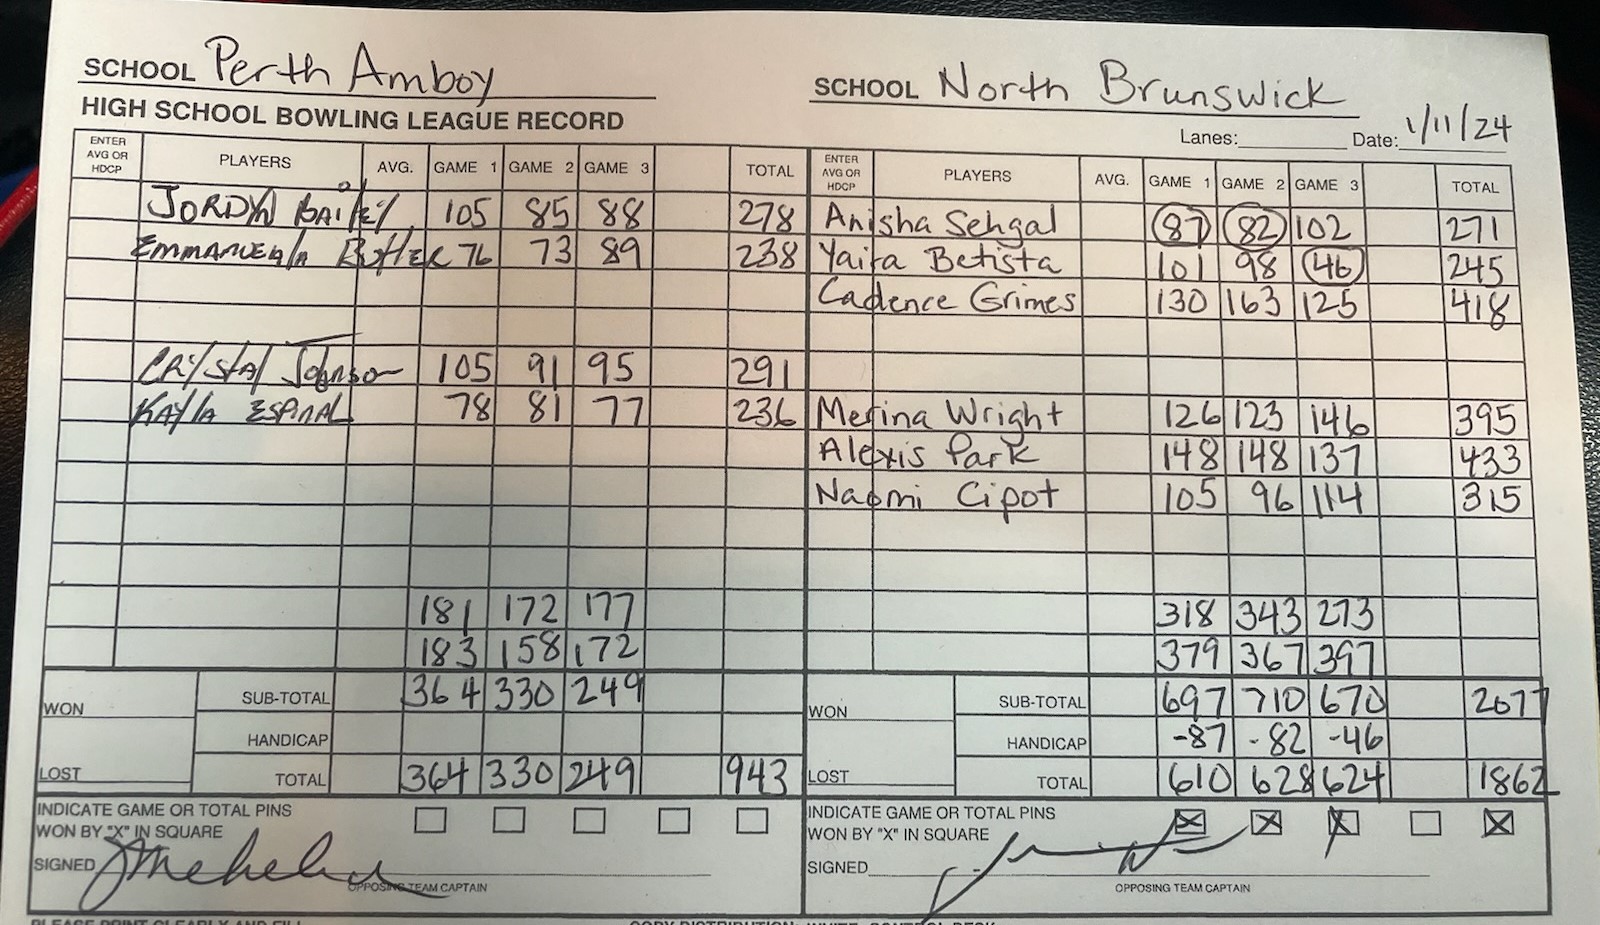 SCHOOL Perth Amboy
SCHOOL North Brunswick
HIGH SCHOOL BOWLING LEAGUE RECORD
Lanes: Date: 1/11/24
ENTER AVG OR HDCP PLAYERS AVG. GAME 1 GAME 2 GAME 3 TOTAL ENTER AVG OR HDCP PLAYERS AVG. GAME 1 GAME 2 GAME 3 TOTAL
JORDYN BAILEY 105 85 88 278 Anisha Sehgal 87 82 102 271
EMMANUELA 76 73 89 238 Yaira Betista 101 98 46 245
Cadence Grimes 130 163 125 418
CRYSTAL Johnson 105 91 95 291
KAYLA ESPINAL 78 81 77 236 Merina Wright 126 123 146 395
Alexis Park 148 148 137 433
Naomi Cipot 105 96 114 315
181 172 177 318 343 273
183 158 172 379 367 397
WON SUB-TOTAL 364 330 249 WON SUB-TOTAL 697 710 670 2077
HANDICAP HANDICAP -87 -82 -46
LOST TOTAL 364 330 249 943 LOST TOTAL 610 628 624 1862
INDICATE GAME OR TOTAL PINS INDICATE GAME OR TOTAL PINS
WON BY "X" IN SQUARE WON BY "X" IN SQUARE X X X X
SIGNED SIGNED
OPPOSING TEAM CAPTAIN OPPOSING TEAM CAPTAIN
PLEASE PRINT CLEARLY AND FILL COPY DISTRIBUTION: WHITE-CONTROL DESK